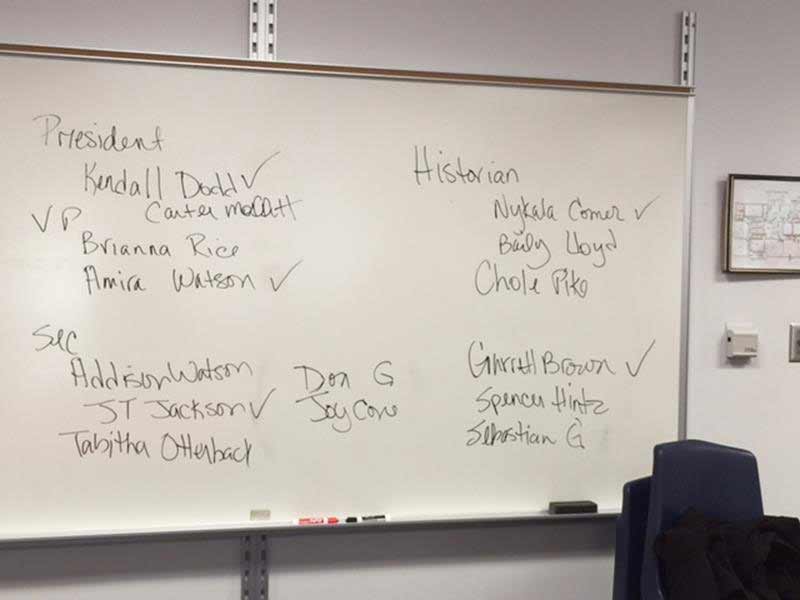 President
Kendall Dodd ✓
Carter Moffatt
VP
Brianna Rice
Amira Watson ✓
Sec
Addison Watson
JT Jackson ✓
Tabitha Otterback
Don G
Joy Cone
Historian
Nykala Comer ✓
Baily Lloyd
Chole Pike
Garrett Brown ✓
Spencer Hintz
Sebastian G